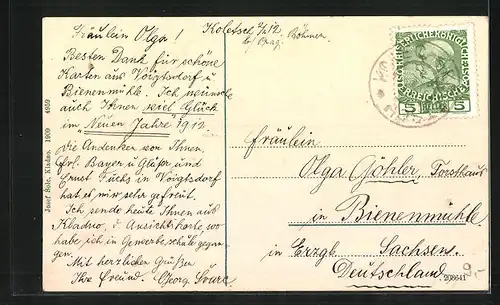 Fräulein Olga!
Koletsch 2/1 12
b/ Prag. Böhmen
Besten Dank für schöne
Karten aus Voigtsdorf u
Bienenmühle. Ich wünsche
auch Ihnen viel Glück
im „Neuen Jahre" 1912.
Die Andenken von Ihnen,
Frl. Bayer u Gläser und
Ernst Fuchs in Voigtsdorf
hat es mir sehr gefreut.
Ich sende heute Ihnen aus
Kladno, d. Ansichtskarte, wo
habe ich in Gewerbeschule gegan-
gen.
Mit herzlichen Grüßen
Ihr Freund. Georg
Josef Solc, Kladno. 1909 4959
5 5
Fräulein
Olga Göhler, Forsthaus
in Bienenmühle
in Erzgb. Sachsens.
Deutschland.
208641
9,-